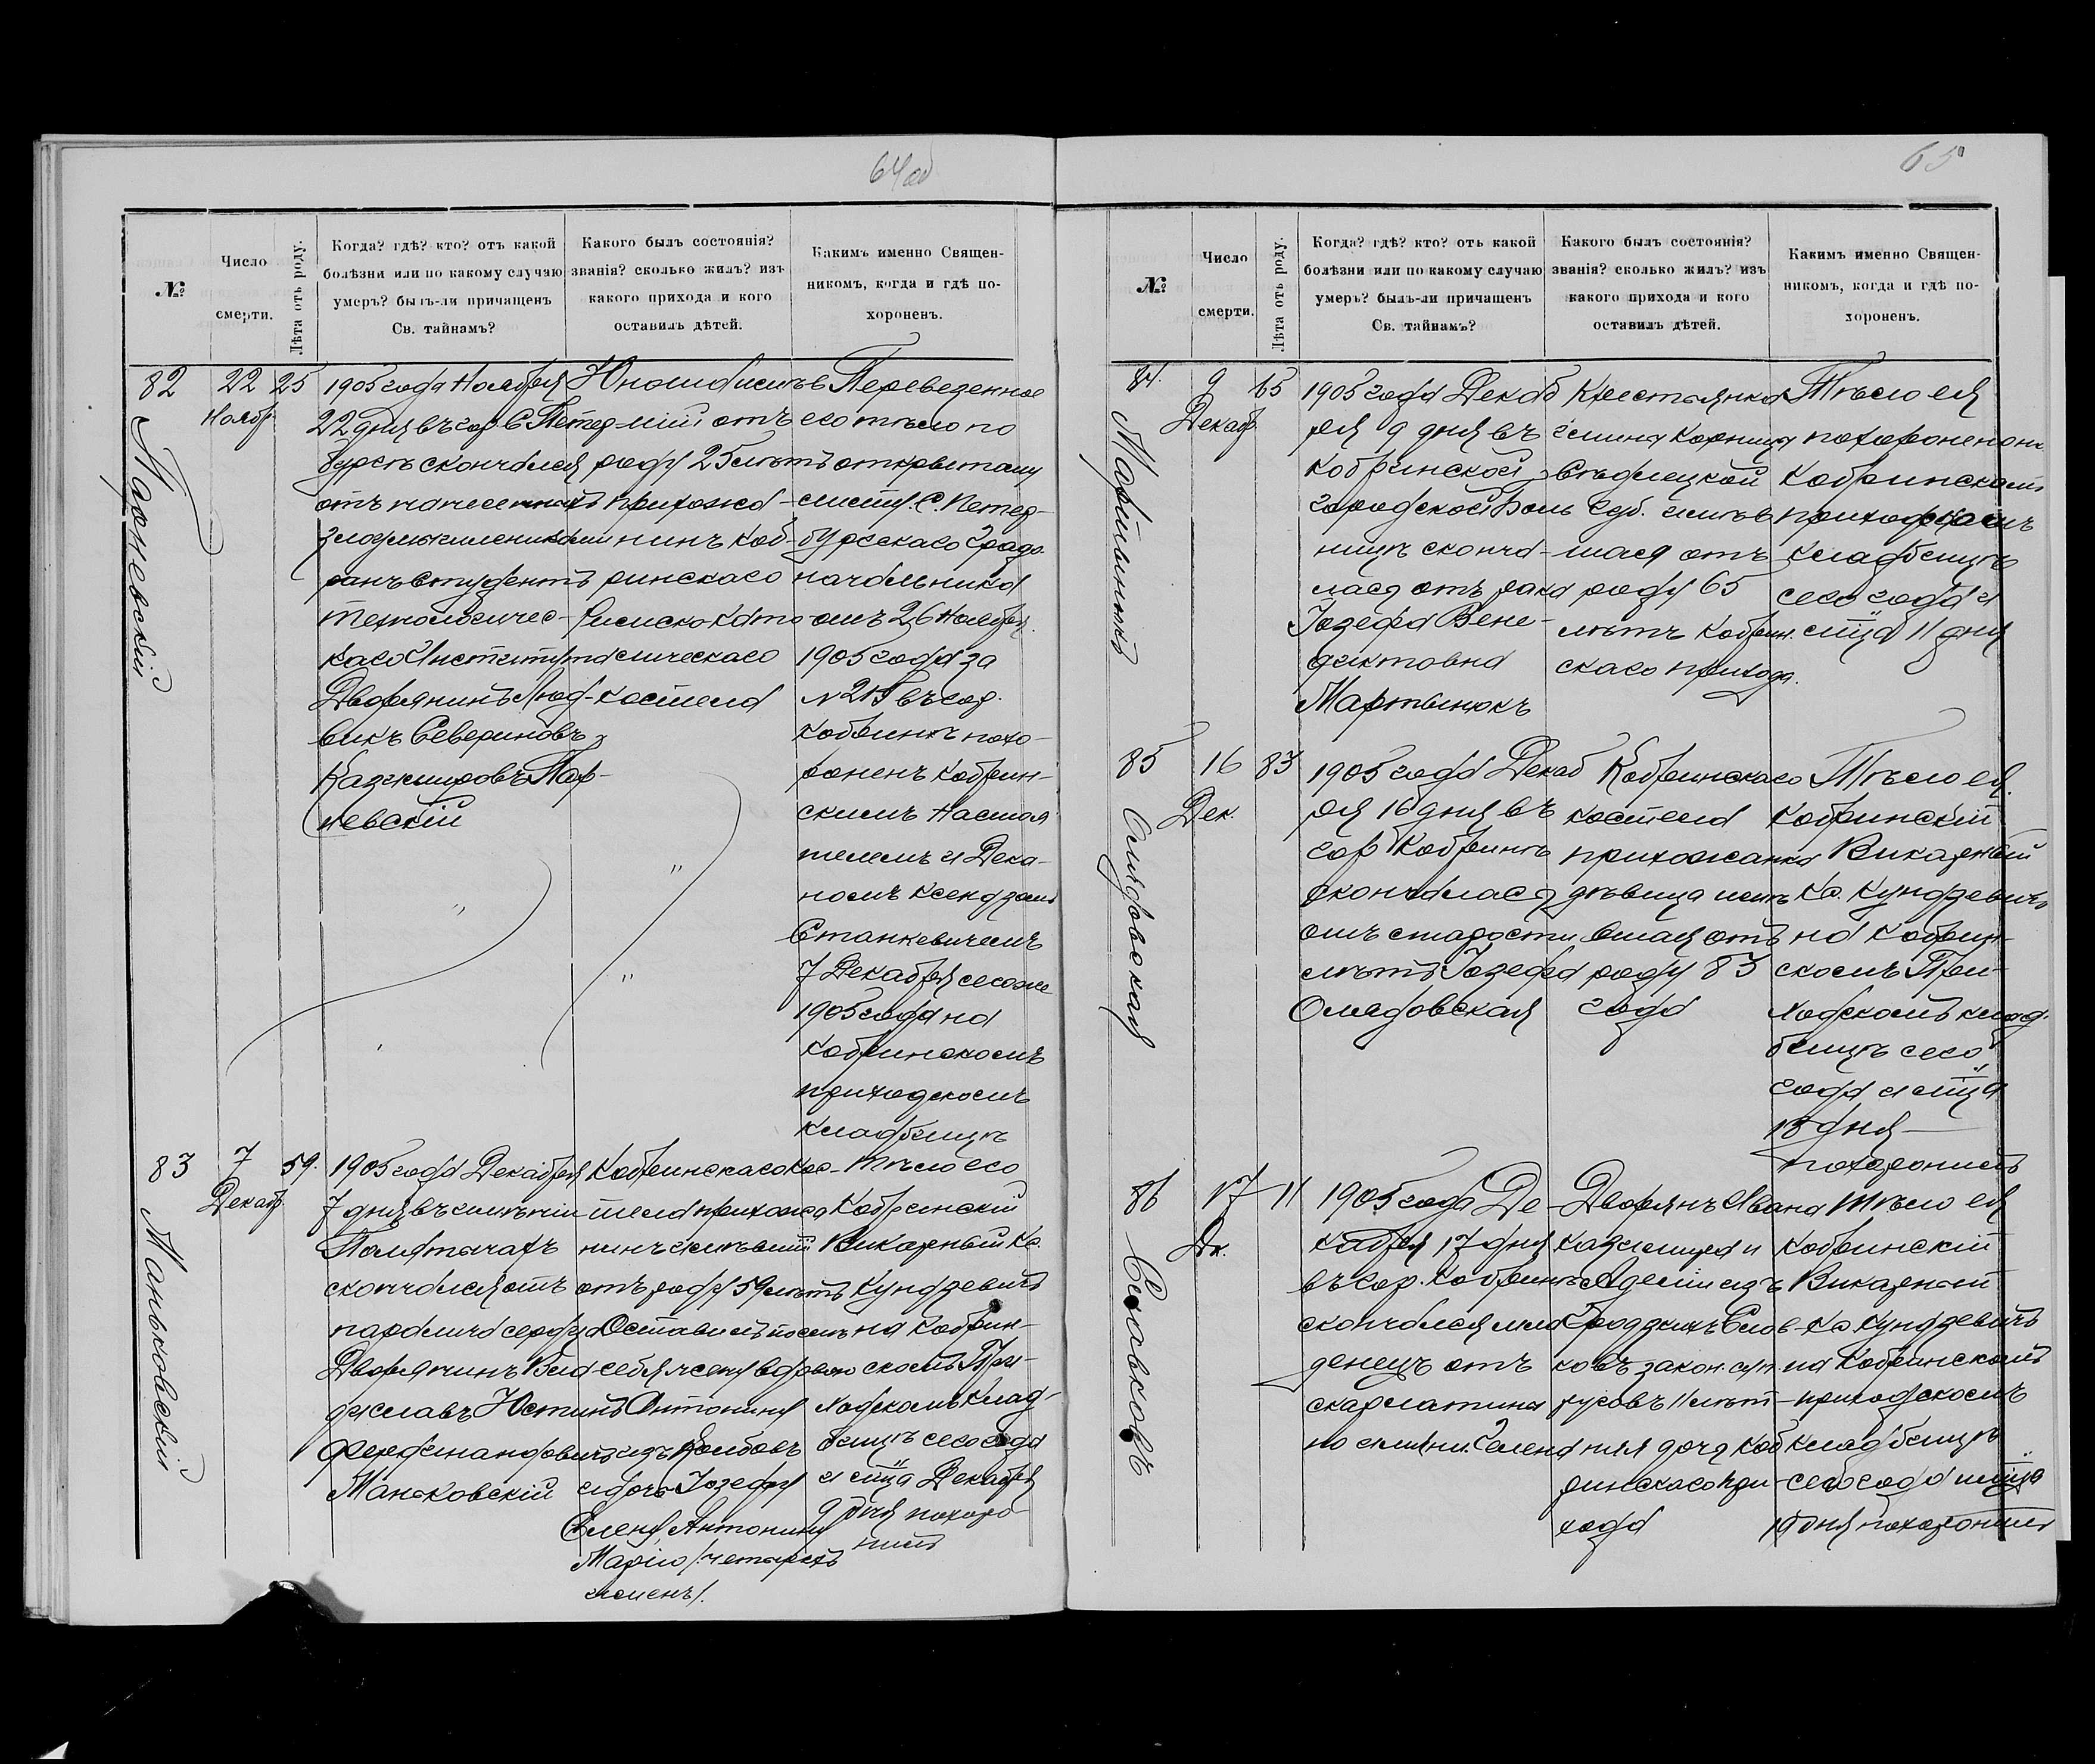 64об
№
Число
смерти.
Лѣта отъ роду.
Когда? гдѣ? кто? отъ какой
болѣзни или по какому случаю
умеръ? былъ-ли причащенъ
Св. тайнамъ?
Какого былъ состоянія?
званія? сколько жилъ? изъ
какого прихода и кого
оставилъ дѣтей.
Какимъ именно Священ-
никомъ, когда и гдѣ по-
хороненъ.
82
22
Ноябр
25
1905 года Ноября
22 дня въ гор. С Петер
бургѣ скончался
отъ нанесенныхъ
злоумышленниками
ранъ студентъ
технологичес-
каго Института
Дворянинъ Люд-
викъ Севериновъ
Казимировъ
невскій
Юноша
отъ
роду 25 лѣтъ
прихожа-
нинъ Коб-
ринскаго
Римско Като-
лическаго
костела
Перевезенное
его тѣло по
открытому
листу С. Петер-
бургскаго Градо
начальника
отъ 26 Ноября
1905 года за
№ въ гор.
Кобринѣ похо-
роненъ Кобрин-
скимъ Настоя
телемъ и Дека-
номъ Ксендзомъ
Станкевичемъ
7 Декабря сегоже
1905 года на
Кобринскомъ
приходскомъ
кладбищѣ
83
Маньковскій
7
Декабр
59.
1905 года Декабря
7 дня въ имѣніи
скончался отъ
паралича сердца
Дворянинъ Вла
диславъ Юстинъ
Фердинандовичъ
Маньковскій
Кобринскаго Кос-
тела прихожа
нинъ имѣвшій
отъ роду 59 лѣтъ
Оставилъ послѣ
себя жену вдовою
Антонину
изъ
и дочь Іозефу
Елену Антонину
Марію /четырехъ
именъ/.
Тѣло его
Кобринскій
Викарный Кс.
Кундзевичъ
на Кобрин-
скомъ При-
ходскомъ клад-
бищѣ сего года
и мца Декабря
9 дня похоро-
нилъ
65
№
Число
смерти.
Лѣта отъ роду.
Когда? гдѣ? кто? отъ какой
болѣзни или по какому случаю
умеръ? былъ-ли причащенъ
Св. тайнамъ?
Какого былъ состоянія?
званія? сколько жилъ? изъ
какого прихода и кого
оставилъ дѣтей.
Какимъ именно Священ-
никомъ, когда и гдѣ по-
хороненъ.
84.
Мартынюкъ
9
Декабр
65
1905 года Декаб
ря 9 дня въ
Кобринской
городской Боль
ницѣ сконча-
лась отъ рака
Іозефа Бене-
диктовна
Мартынюкъ
Крестьянка
гмины Корница
Сѣдлецкой
Губ. имѣв
шая отъ
роду 65
лѣтъ Кобрин.
скаго прихода.
Тѣло ея
похоронено на
Кобринскомъ
приходскомъ
кладбищѣ
сего года и
мца 11 дня
85
16
Дек.
83
1905 года Декаб
ря 16 дня въ
гор Кобринѣ
скончалась
отъ старости
лѣтъ Іозефа
Олядовская
Кобринскаго
костела
прихожанка
дѣвица имѣ
вшая отъ
роду 83
года
Тѣло ея
Кобринскій
Викарный
Кс. Кундзевичъ
на Кобрин-
скомъ При-
ходскомъ клад-
бищѣ сего
года и мца
18 дня
похоронилъ
86
17
Дк.
11
1905 года Де-
кабря 17 дня
въ гор. Кобринѣ
скончался мла
денецъ отъ
скарлатины
по имени Гелена
Дворянъ Ивана
Казимира и
Аделіи изъ
закон. суп.
руговъ 11 лѣт-
няя дочь Коб
ринскаго при-
хода
Тѣло ея
Кобринскій
Викарный
Кс Кундзевичъ
на Кобринскомъ
приходскомъ
кладбищѣ
сего года и мца
19 дня похоронилъ